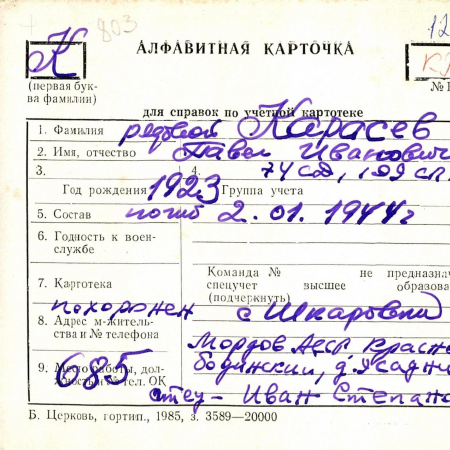 803
12
К
АЛФАВИТНАЯ КАРТОЧКА
(первая бук-
ва фамилии)
для справок по учетной картотеке
1. Фамилия рядовой Карасев
2. Имя, отчество Павел Иванович
3.
4. 74 сд, 109 сп
Год рождения 1923 Группа учета
5. Состав погиб 2.01.1944г
6. Годность к воен-
службе
Команда № не предназнач
7. Картотека спецучет высшее образова
(подчеркнуть)
похоронен с Шкаровка
8. Адрес м-житель-
ства и № телефона
Мордов Асср Красно
685
9. Место работы, дол-
жность и № тел. ОК
отец - Иван Степано
Б. Церковь, гортип., 1985, з. 3589—20000